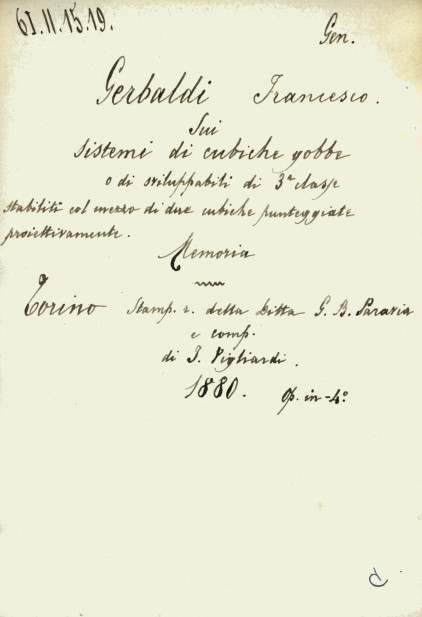 61.II.15.19.
Gen.
Gerbaldi Francesco.
Sui
sistemi di cubiche gobbe
o di sviluppabili di 3ª classe
stabiliti col mezzo di due cubiche punteggiate
proiettivamente.
Memoria
Torino Stamp. r. della Ditta G. B. Paravia
e comp.
di I. Vigliardi.
1880. Op. in-4º